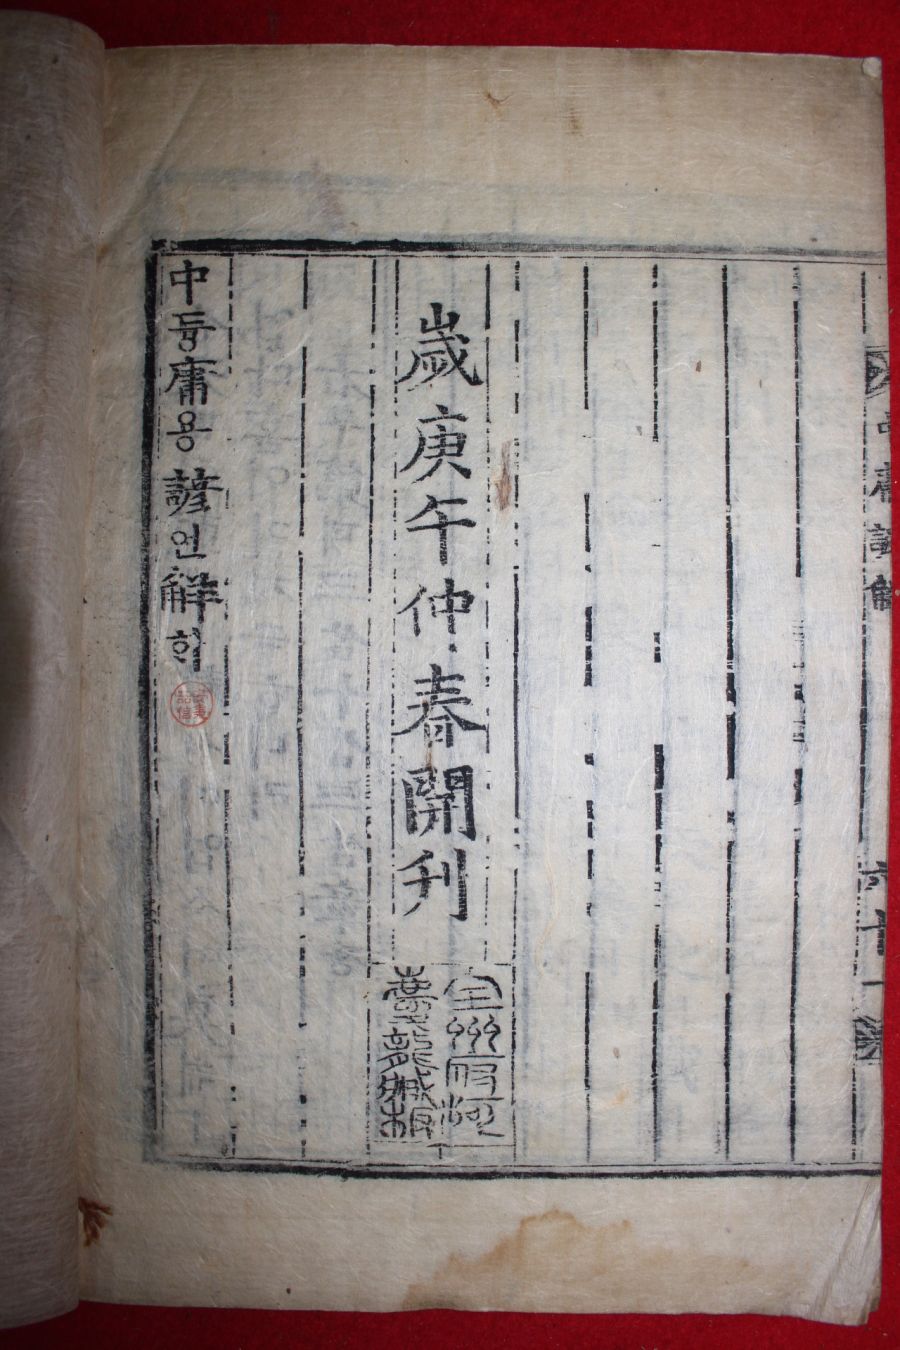 中庸諺解 六十一
歲庚午仲春開刊
全州府河
慶龍藏板
中듕庸용諺언解ᄒᆡ